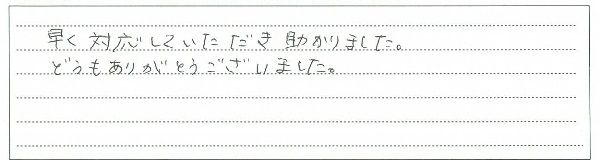 早く対応していただき助かりました。
どうもありがとうございました。